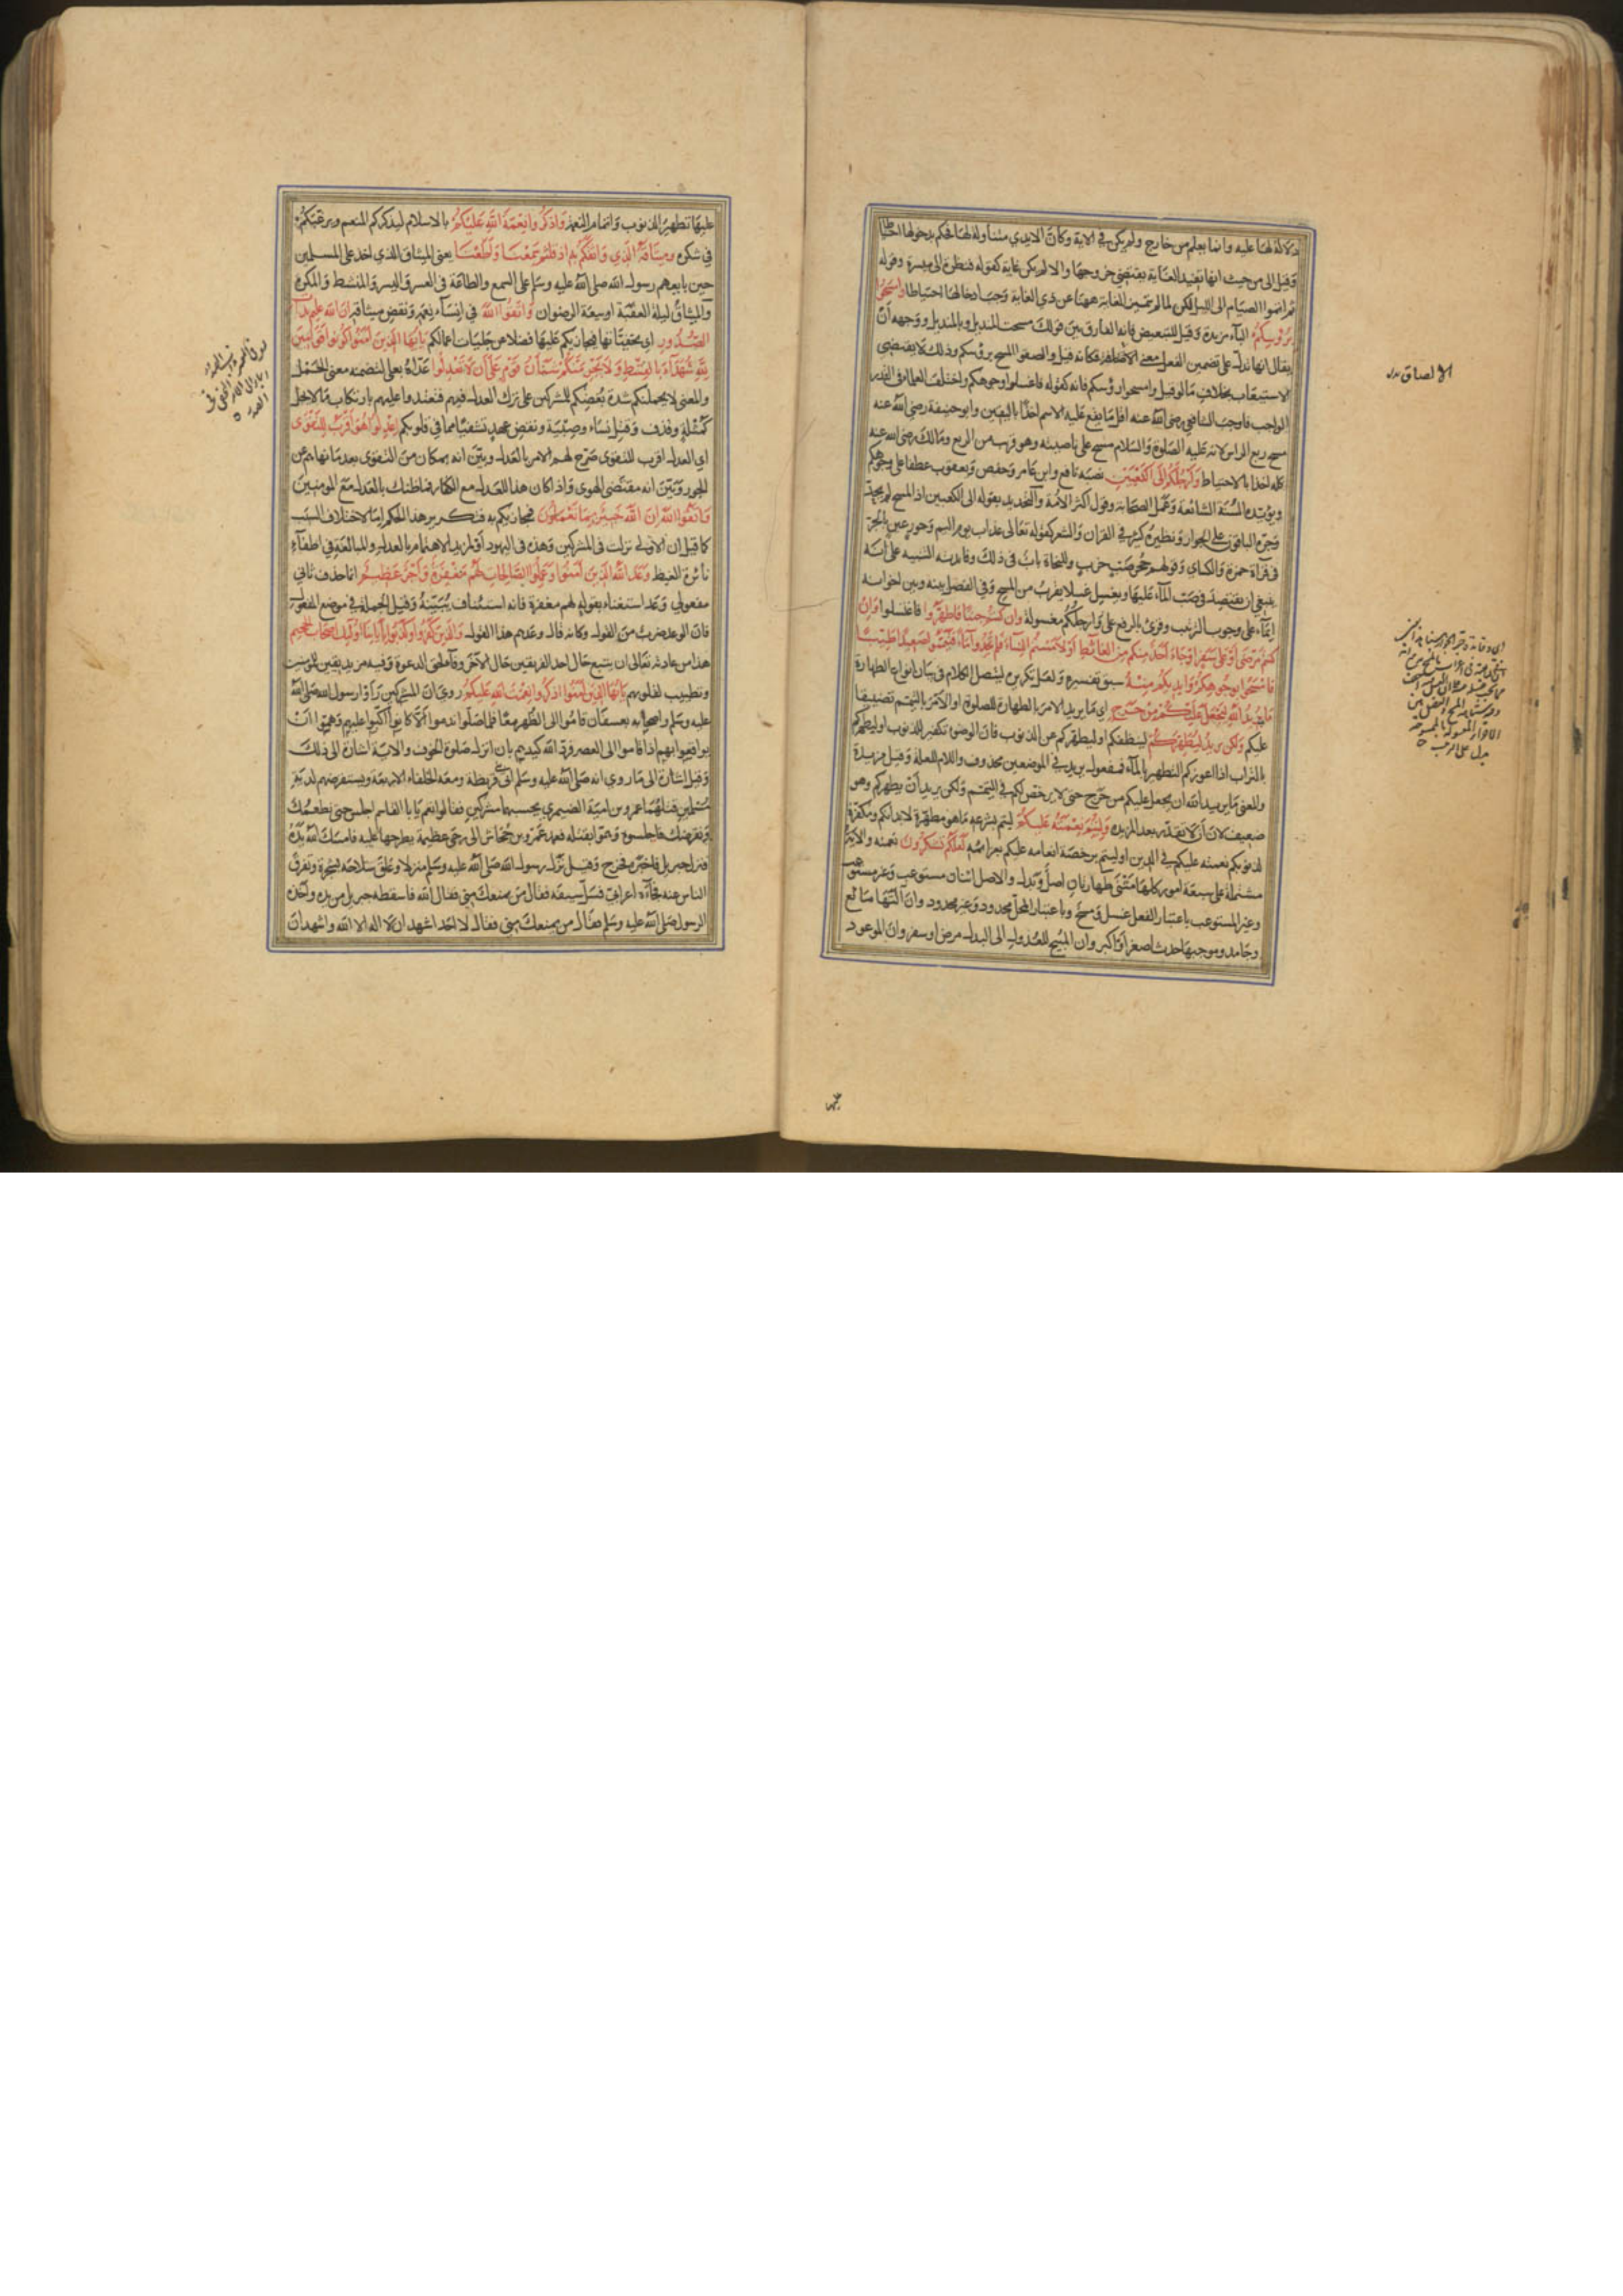 دلالة لها عليه وانما يعلم من خارج ولم يكن في الاية وكان الايدي متناولة لها فحكم بدخولها احتياطا
وقيل الى من حيث انها تفيد الغاية يقتضي خروجها والا لم يكن غاية كقوله فنظرة الى ميسرة وقوله
ثم اتموا الصيام الى الليل لكن لما لم تتميز الغاية ههنا عن ذي الغاية وجب ادخالها احتياطا وامسحوا
برؤسكم الباء مزيدة وقيل للتبعيض فانه الفارق بين قولك مسحت المنديل وبالمنديل ووجهه ان
يقال انها تدل على تضمين الفعل معنى الالصاق فكانه قيل والصقوا المسح برؤسكم وذلك لا يقتضي
الاستيعاب بخلاف ما لو قيل وامسحوا رؤسكم فانه كقوله فاغسلوا وجوهكم واختلف العلماء في القدر
الواجب فاوجب الشافعي رضي الله عنه اقل ما يقع عليه الاسم اخذا باليقين وابو حنيفة رضي الله عنه
مسح ربع الراس لانه عليه الصلوة والسلام مسح على ناصيته وهو قريب من الربع ومالك رضي الله عنه
كله اخذا بالاحتياط وارجلكم الى الكعبين نصبه نافع وابن عامر وحفص ويعقوب عطفا على وجوهكم
ويؤيده السنة الشائعة وعمل الصحابة وقول اكثر الائمة والتحديد بقوله الى الكعبين اذ المسح لم يحد
وجره الباقون على الجوار ونظيره كثير في القران والشعر كقوله تعالى عذاب يوم اليم وحور عين بالجر
في قراة حمزة والكساي وقولهم جحر ضب خرب وللنحاة باب في ذلك وفايدته التنبيه على انه
ينبغي ان يقتصد في صب الماء عليها ويغسل غسلا يقرب من المسح وفي الفصل بينه وبين اخواته
ايماء على وجوب الترتيب وقرئ بالرفع على وارجلكم مغسولة وان كنتم جنبا فاطهروا فاغسلوا وان
كنتم مرضى او على سفر او جاء احد منكم من الغائط او لامستم النساء فلم تجدوا ماء فتيمموا صعيدا طيبا
فامسحوا بوجوهكم وايديكم منه سبق تفسيره ولعل تكريره ليتصل الكلام في بيان انواع الطهارة
ما يريد الله ليجعل عليكم من حرج اي ما يريد الامر بالطهارة للصلوة او الامر بالتيمم تضييقا
عليكم ولكن يريد ليطهركم لينظفكم او ليطهركم عن الذنوب فان الوضوء تكفير للذنوب او ليطهركم
بالتراب اذا اعوزكم التطهير بالماء فمفعول يريد في الموضعين محذوف واللام للعلة وقيل مزيدة
والمعنى ما يريد الله ان يجعل عليكم من حرج حتى لا يرخص لكم في التيمم ولكن يريد ان يطهركم وهو
ضعيف لان ان لا تقدر بعد المزيده وليتم نعمته عليكم ليتم بشرعه ما هو مطهرة لابدانكم ومكفرة
لذنوبكم نعمته عليكم في الدين او ليتم برخصة انعامه عليكم بعزائمه لعلكم تشكرون نعمته والاية
مشتملة على سبعة امور كلها مثنى طهارتان اصل وبدل والاصل اثنان مستوعب وغير مستوعب
وغير المستوعب باعتبار الفعل غسل ومسح وباعتبار المحل محدود وغير محدود وان آلتها مائع
وجامد وموجبها حدث اصغر او اكبر وان المبيح للعدول الى البدل مرض او سفر وان الموعود
الالصاق
عليها تطهير الذنوب واتمام النعمة واذكروا نعمة الله عليكم بالاسلام ليذكركم المنعم ويرغبكم
في شكره وميثاقه الذي واثقكم به اذ قلتم سمعنا واطعنا يعني الميثاق الذي اخذ على المسلمين
حين بايعهم رسول الله صلى الله عليه وسلم على السمع والطاعة في العسر واليسر والمنشط والمكره
والميثاق ليلة العقبة او بيعة الرضوان واتقوا الله في انساء نعمه ونقض ميثاقه ان الله عليم بذات
الصدور اي بخفياتها فيجازيكم عليها فضلا عن جليات اعمالكم يا ايها الذين امنوا كونوا قوامين
لله شهداء بالقسط ولا يجرمنكم شنآن قوم على ان لا تعدلوا عداه بعلى لتضمنه معنى الحمل
والمعنى لا يحملنكم شدة بغضكم للمشركين على ترك العدل فيهم فتعتدوا عليهم بارتكاب ما لا يحل
كمثلة وقذف وقتل نساء وصبية ونقض عهد تشفيا مما في قلوبكم اعدلوا هو اقرب للتقوى
اي العدل اقرب للتقوى صرح لهم الامر بالعدل وبين انه بمكان من التقوى بعد ما نهاهم عن
الجور وبين انه مقتضى الهوى واذا كان هذا العدل مع الكفار فما ظنك بالعدل مع المومنين
واتقوا الله ان الله خبير بما تعملون فيجازيكم به فتكرير هذا الحكم اما لاختلاف السبب
كما قيل ان الاولى نزلت في المشركين وهذه في اليهود او لمزيد الاهتمام بالعدل والمبالغة في اطفاء
نائرة الغيظ وعد الله الذين امنوا وعملوا الصالحات لهم مغفرة واجر عظيم انما حذف ثاني
مفعولي وعد استغناء بقوله لهم مغفرة فانه استئناف يبينه وقيل الجملة في موضع المفعول
فان الوعد ضرب من القول وكانه قال وعدهم هذا القول والذين كفروا وكذبوا باياتنا اولئك اصحاب الجحيم
هذا من عادته تعالى ان يتبع حال احد الفريقين حال الآخر وفاء لحق الدعوة وفيه مزيد يقين للمومنين
وتطييب لقلوبهم يا ايها الذين امنوا اذكروا نعمت الله عليكم روي ان المشركين راوا رسول الله صلى الله
عليه وسلم واصحابه بعسفان قاموا الى الظهر معا فلما صلوا ندموا الا كانوا اكبوا عليهم وهموا ان
يوقعوا بهم اذا قاموا الى العصر فرد الله كيدهم بان انزل صلوة الخوف والاية اشارة الى ذلك
وقيل اشارة الى ما روي انه صلى الله عليه وسلم اتى قريظة ومعه الخلفاء الاربعة ويستقرضهم لدية
مسلمين قتلهما عمرو بن امية الضيمري يحسبهما مشركين فقالوا نعم يا ابا القاسم اجلس حتى نطعمك
ونقرضك فاجلسوه وهموا بقتله فعمد عمرو بن جحاش الى رحى عظيمة يطرحها عليه فامسك الله يده
فنزل جبريل فاخبره فخرج وقيل نزل رسول الله صلى الله عليه وسلم منزلا وعلق سلاحه بشجرة وتفرق
الناس عنه فجاءه اعرابي فسل سيفه فقال من يمنعك مني فقال الله فاسقطه جبريل من يده واخذه
الرسول صلى الله عليه وسلم فقال من يمنعك مني فقال لا احد اشهد ان لا اله الا الله واشهد ان